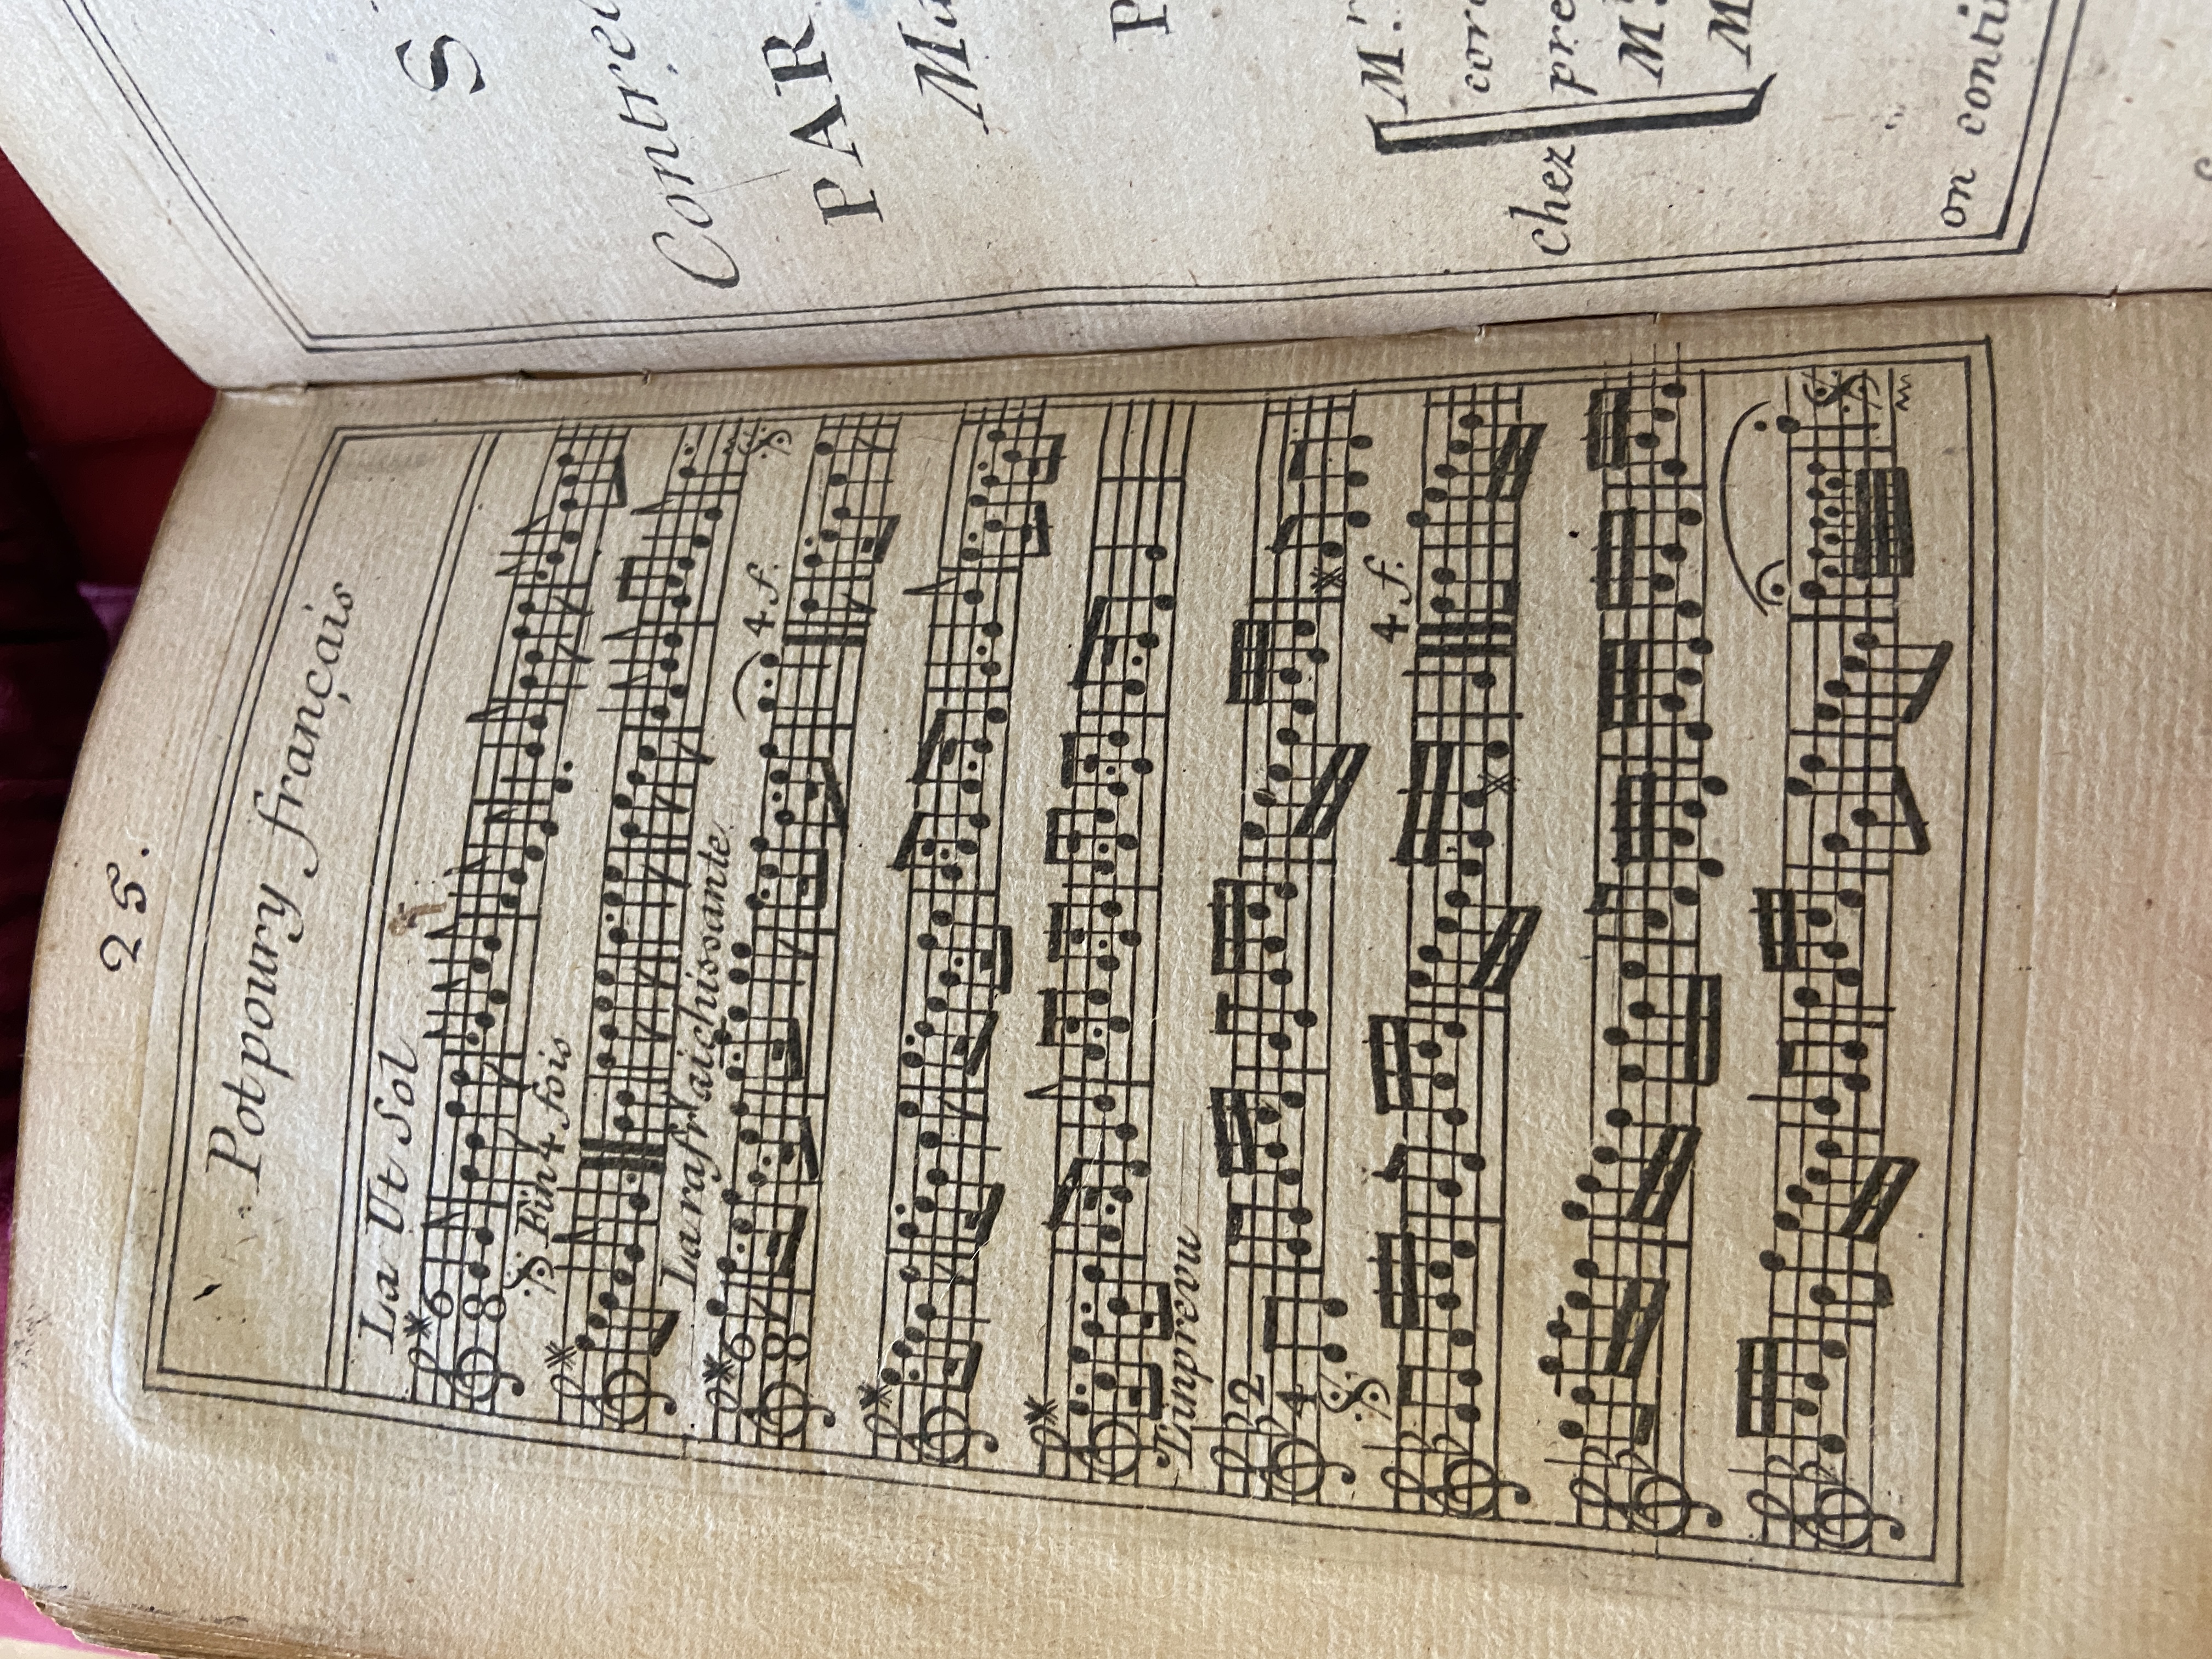 25.
Potpoury français
La Ut Sol
6
8
Fin 4 fois
La rafraichissante
6
8
4. f.
L'inprevu
2
4
4. f.
S
Contre
PAR
Mu
P
M.
cor
chez pre
M
M
on contin